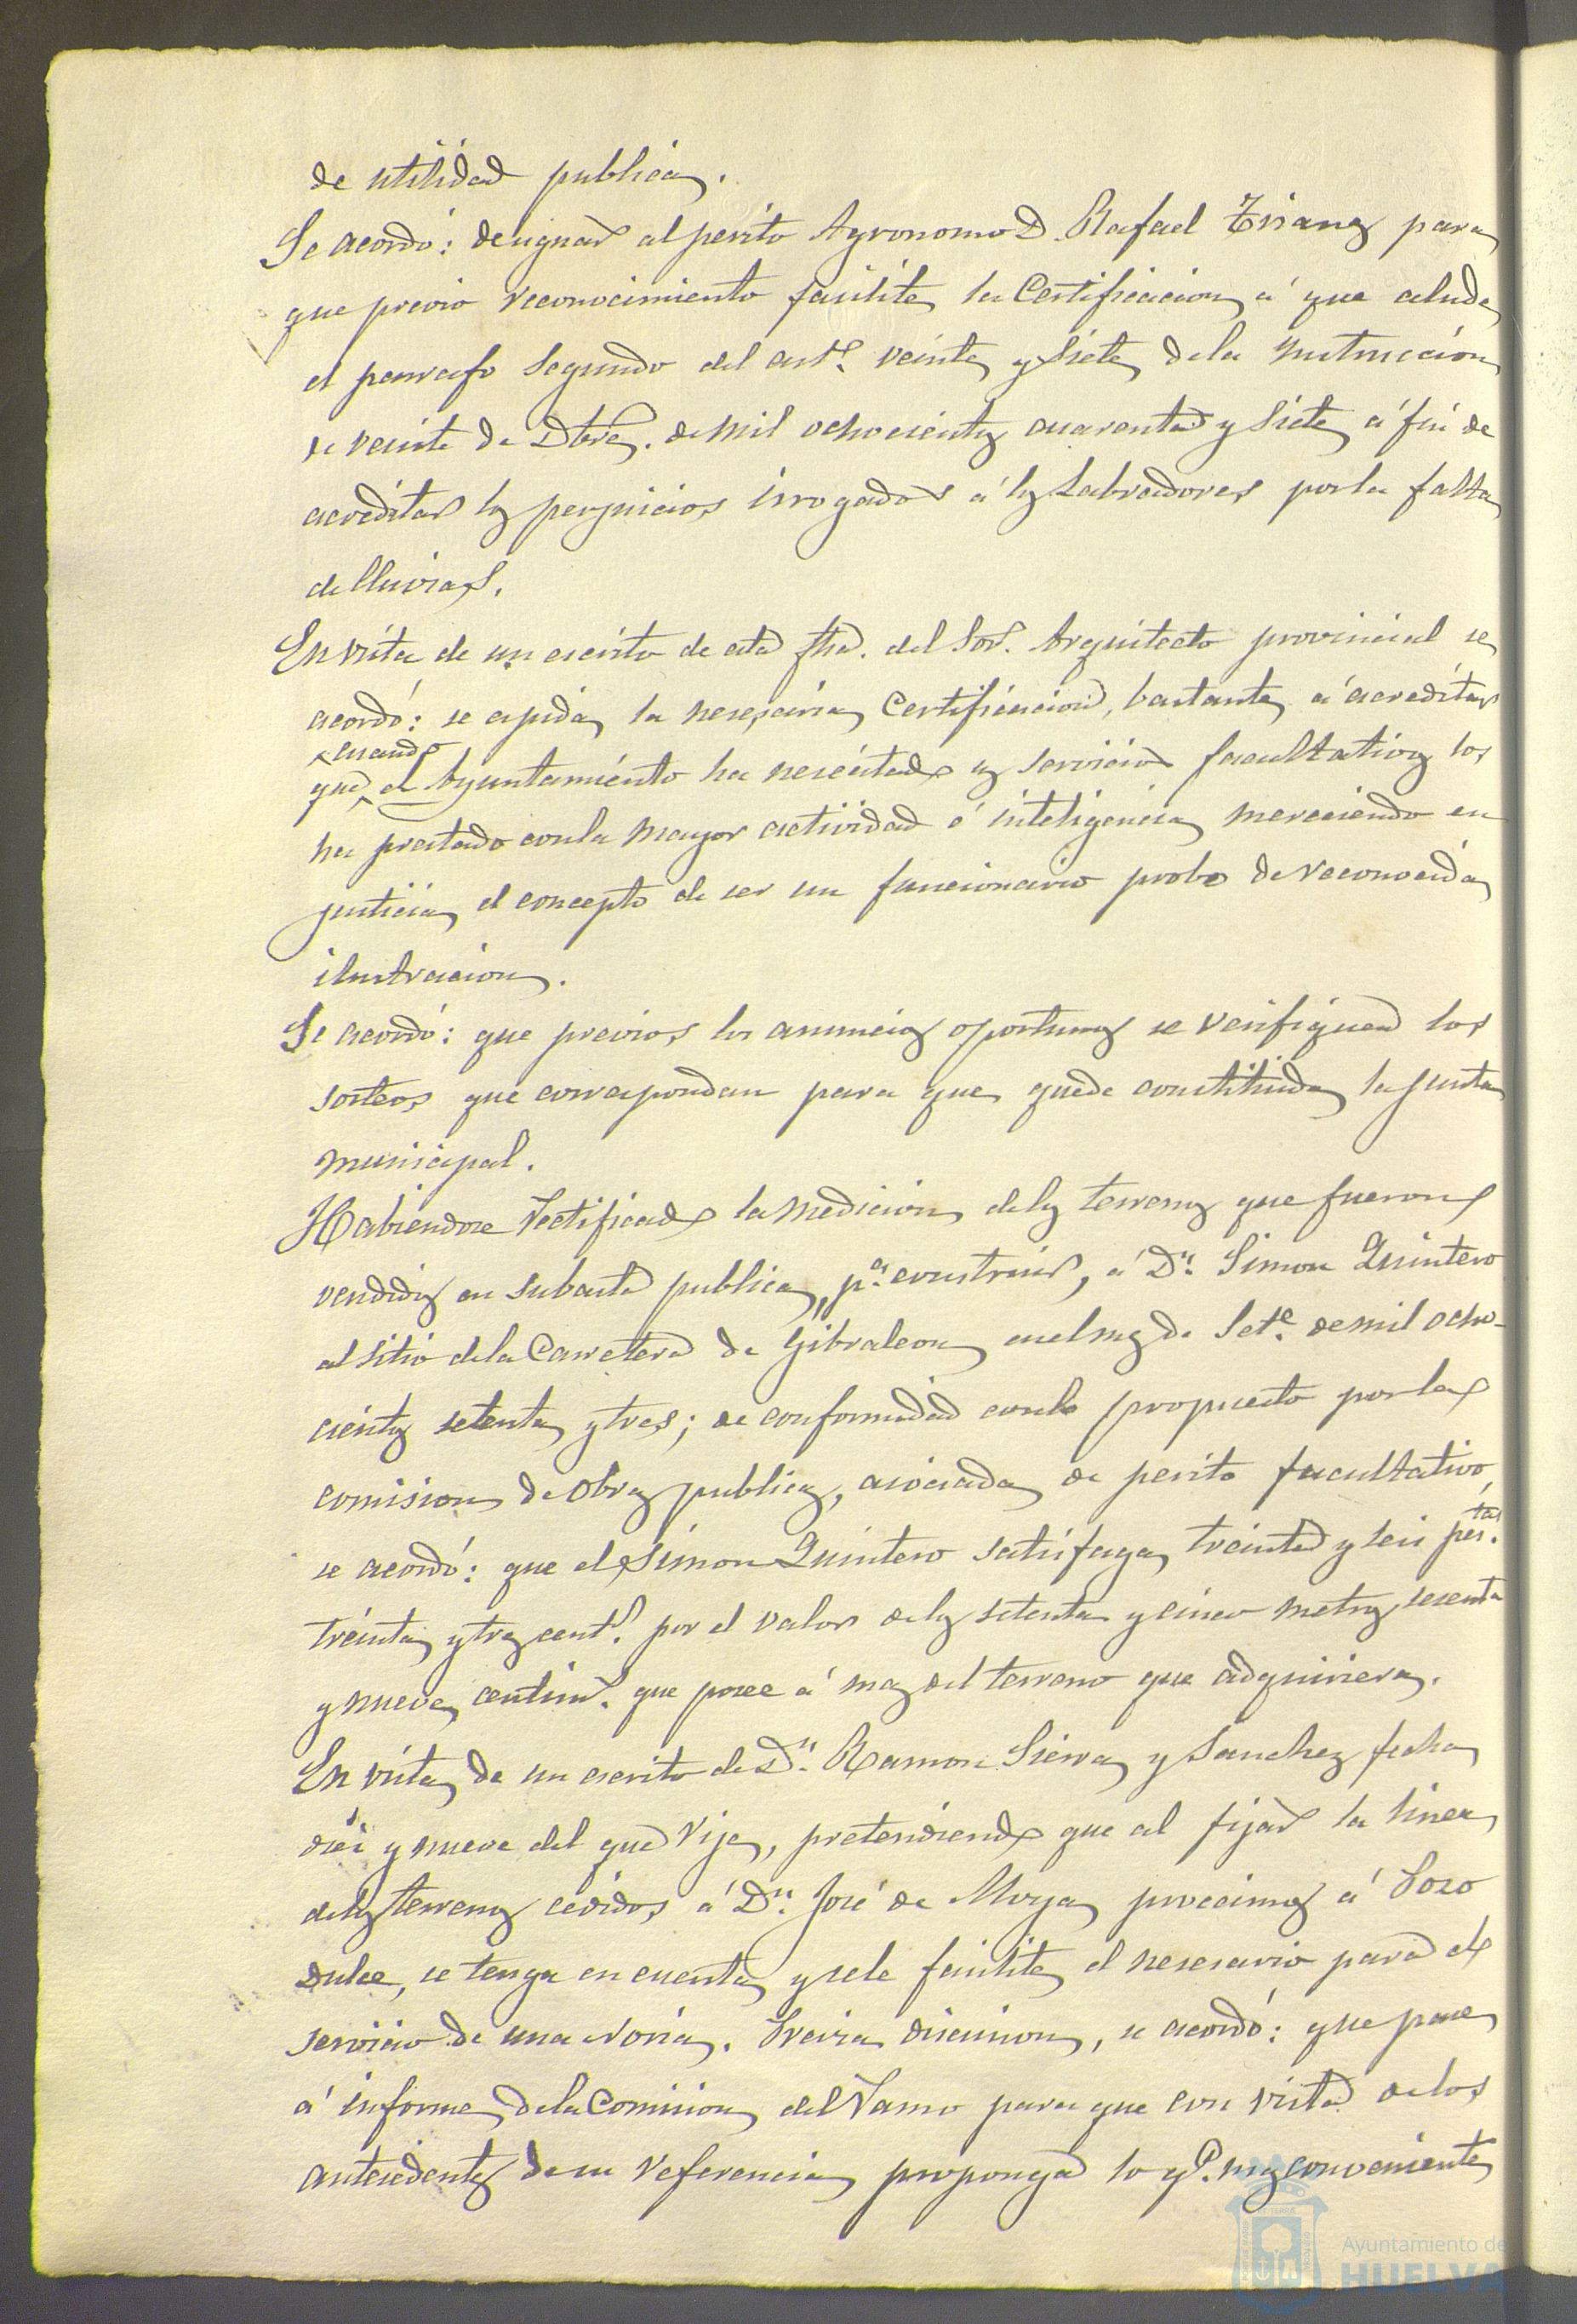 de utilidad publica.
Se acordó: designar al perito Agronomo D. Rafael Triana para
que previo reconocimiento facilite la Certificacion á que alude
el parrafo segundo del artº. veinte y siete de la instruccion
de veinte de Dbre. de mil ochocientos cuarenta y siete á fin de
acreditar los perjuicios irrogados á los Labradores por la falta
de lluvias.
En vista de un escrito de esta fha. del Sor. Arquitecto provincial se
acordó: se espida la nesesaria Certificacion, bastante á acreditar
que cuando el Ayuntamiento ha nesecitado sus servicios facultativos los
ha prestado con la mayor actividad é inteligencia mereciendo en
justicia el concepto de ser un funcionario probo de reconocida
ilustracion.
Se acordó: que previos los anuncios oportunos se verifiquen los
sorteos que correspondan para que quede constituida la Junta
municipal.
Habiendose rectificado la medicion de los terrenos que fueron
vendidos en subasta publica, pª. construir, á Dn. Simon Quintero
al sitio de la Carretera de Gibraleon en el mes de Sete. de mil ocho-
cientos setenta y tres; de conformidad con lo propuesto por la
comision de obras publicas, asociada de perito facultativo,
se acordó: que el Simon Quintero satisfaga treinta y seis pestas.
treinta y tres cents. por el valor de los setenta y cinco metros sesenta
y nueve centims. que posee á mas del terreno que adquiriera.
En vista de un escrito de Dn. Ramon Sierra y Sanchez fecha
diez y nueve del que rije, pretendiendo que al fijar la linea
de los terrenos cedidos á Dn. José de Moya procsimos á Poso
dulce, se tenga en cuenta y se le facilite el nesesario para el
servicio de una noria. Previa discusion, se acordó: que pase
á informe de la Comision del ramo para que con vista de los
antesedentes de su referencia proponga lo q. mas conveniente
Ayuntamiento de
HUELVA